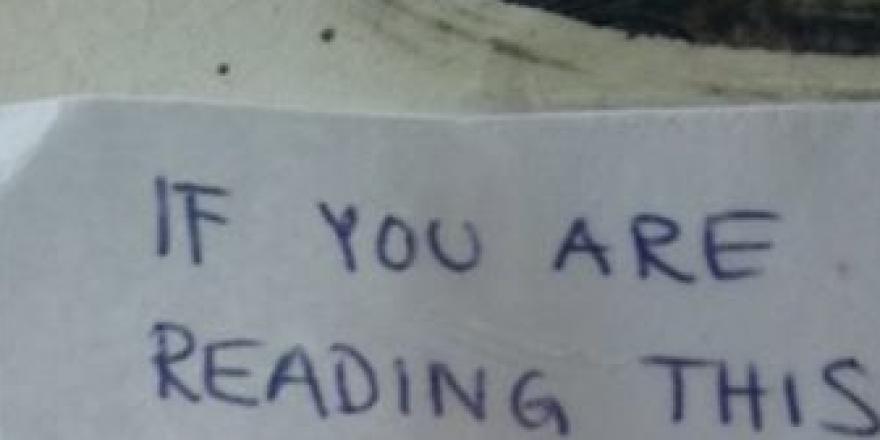 IF YOU ARE
READING THIS